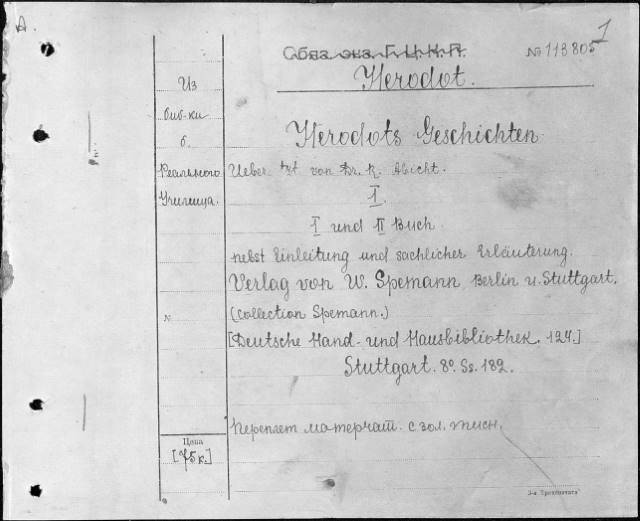 A.
1
№ 113805
Herodot.
Из
биб-ки
б.
Реального
Училища.
Herodots Geschichten.
Uebersetzt von Dr. K. Abicht.
I.
I und II Buch
nebst Einleitung und sachlicher Erläuterung.
Verlag von W. Spemann, Berlin u. Stuttgart.
(Collection Spemann.)
№
[Deutsche Hand- und Hausbibliothek. 124.]
Stuttgart. 8º. Ss. 182.
Переплет матерчат. с зол. тисн.
Цена
[75 к.]